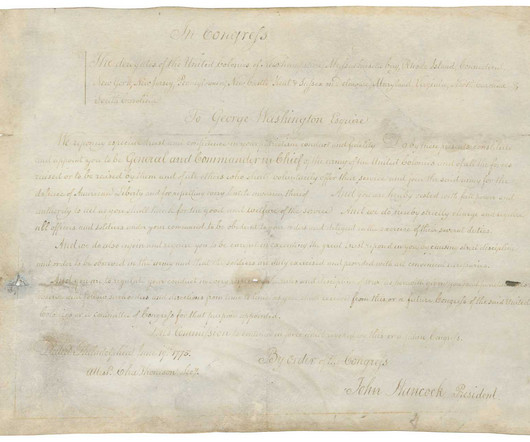 In Congress
The delegates of the United Colonies of New hampshire, Massachusetts bay, Rhode Island, Connecticut
New York, New Jersey, Pennsylvania, New Castle Kent & Sussex on Delaware, Maryland, Virginia, North Carolina &
South Carolina
To George Washington Esquire
We reposing especial trust and confidence in your patriotism, conduct and fidelity Do by these presents constitute
and appoint you to be General and Commander in chief of the army of the United Colonies and of all the forces
raised or to be raised by them and of all others who shall voluntarily offer their service and join the said army for the
defence of American Liberty and for repelling every hostile invasion thereof And you are hereby vested with full power and
authority to act as you shall think for the good and welfare of the service And we do hereby strictly charge and require
all officers and soldiers under your command to be obedient to your orders and diligent in the exercise of their several duties
And we do also enjoin and require you to be careful in executing the great trust reposed in you, by causing strict discipline
and order to be observed in the army and that the soldiers are duly exercised and provided with all convenient necessaries
And you are to regulate your conduct in every respect by the rules and discipline of war
from this or a future Congress of the said United
Colonies or a committee of Congress for that purpose appointed
This Commission to continue in force until revoked by this or a future Congress
Philadelphia June 19 1775
Attest Cha Thomson Secy
By Order of the Congress
John Hancock President